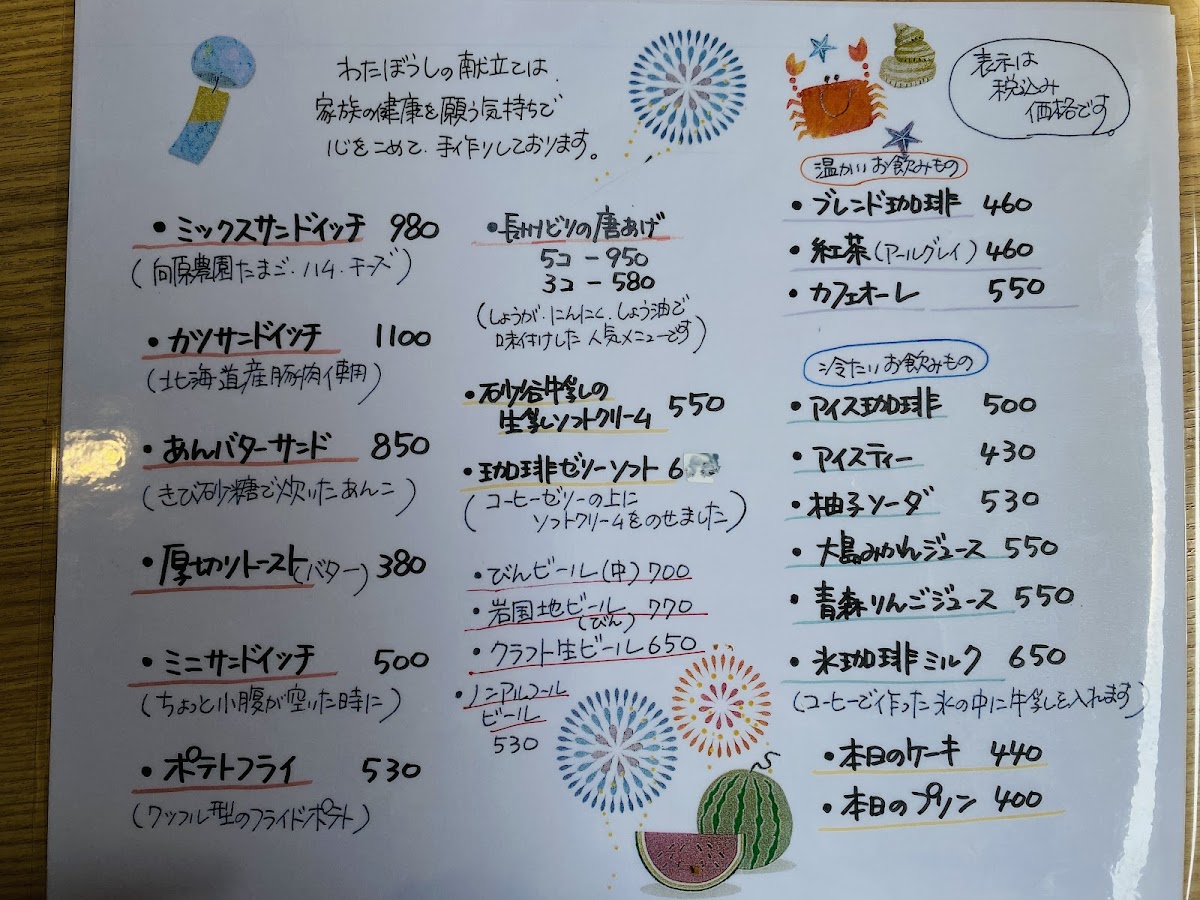 わたぼうしの献立ては、
家族の健康を願う気持ちで
心をこめて、手作りしております。
表示は
税込み
価格です
・ミックスサンドイッチ 980
(向原農園たまご・ハム・チーズ)
・カツサンドイッチ 1100
(北海道産豚肉使用)
・あんバターサンド 850
(きび砂糖で炊いたあんこ)
・厚切りトースト(バター) 380
・ミニサンドイッチ 500
(ちょっと小腹が空いた時に)
・ポテトフライ 530
(ワッフル型のフライドポテト)
・長州どりの唐あげ
5コ - 950
3コ - 580
(しょうが、にんにく、しょう油で
味付けした人気メニューです)
・砂谷牛乳の
生乳ソフトクリーム 550
・珈琲ゼリーソフト 6
(コーヒーゼリーの上に
ソフトクリームをのせました)
・びんビール(中) 700
・岩国地ビール 770
(びん)
・クラフト生ビール 650
・ノンアルコール
ビール
530
温かいお飲みもの
・ブレンド珈琲 460
・紅茶(アールグレイ) 460
・カフェオーレ 550
冷たいお飲みもの
・アイス珈琲 500
・アイスティー 430
・柚子ソーダ 530
・大島みかんジュース 550
・青森りんごジュース 550
・氷珈琲ミルク 650
(コーヒーで作った氷の中に牛乳を入れます)
・本日のケーキ 440
・本日のプリン 400